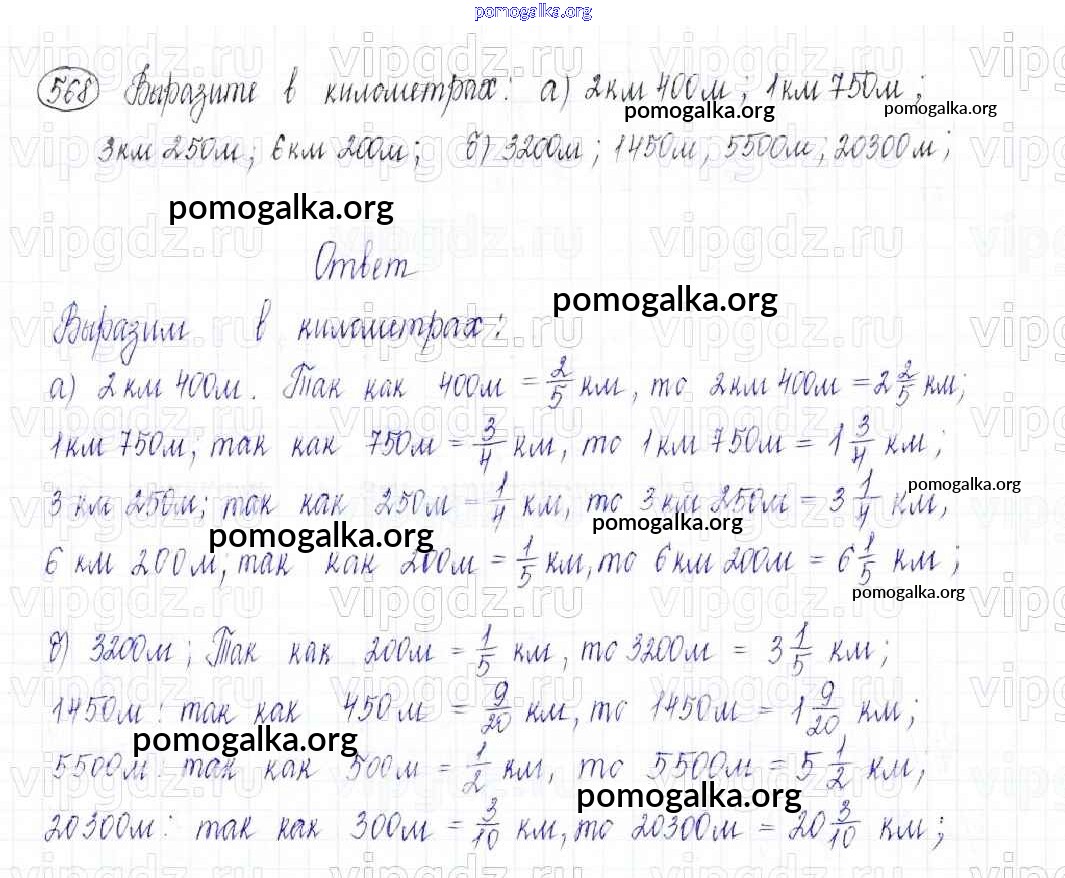 pomogalka.org
568 Выразите в километрах: а) 2км 400м; 1км 750м;
pomogalka.org pomogalka.org
3км 250м; 6км 200м; б) 3200м; 1450м, 5500м, 20300м;
pomogalka.org
Ответ
pomogalka.org
Выразим в километрах:
а) 2км 400м. Так как 400м = 2/5 км, то 2км 400м = 2 2/5 км;
1км 750м; так как 750м = 3/4 км, то 1км 750м = 1 3/4 км;
pomogalka.org
3км 250м; так как 250м = 1/4 км, то 3км 250м = 3 1/4 км,
pomogalka.org pomogalka.org
6 км 200м; так как 200м = 1/5 км, то 6км 200м = 6 1/5 км;
pomogalka.org
б) 3200м; Так как 200м = 1/5 км, то 3200м = 3 1/5 км;
1450м: так как 450м = 9/20 км, то 1450м = 1 9/20 км;
pomogalka.org
5500м: так как 500м = 1/2 км, то 5500м = 5 1/2 км,
pomogalka.org
20300м: так как 300м = 3/10 км, то 20300м = 20 3/10 км;
vipgdz.ru